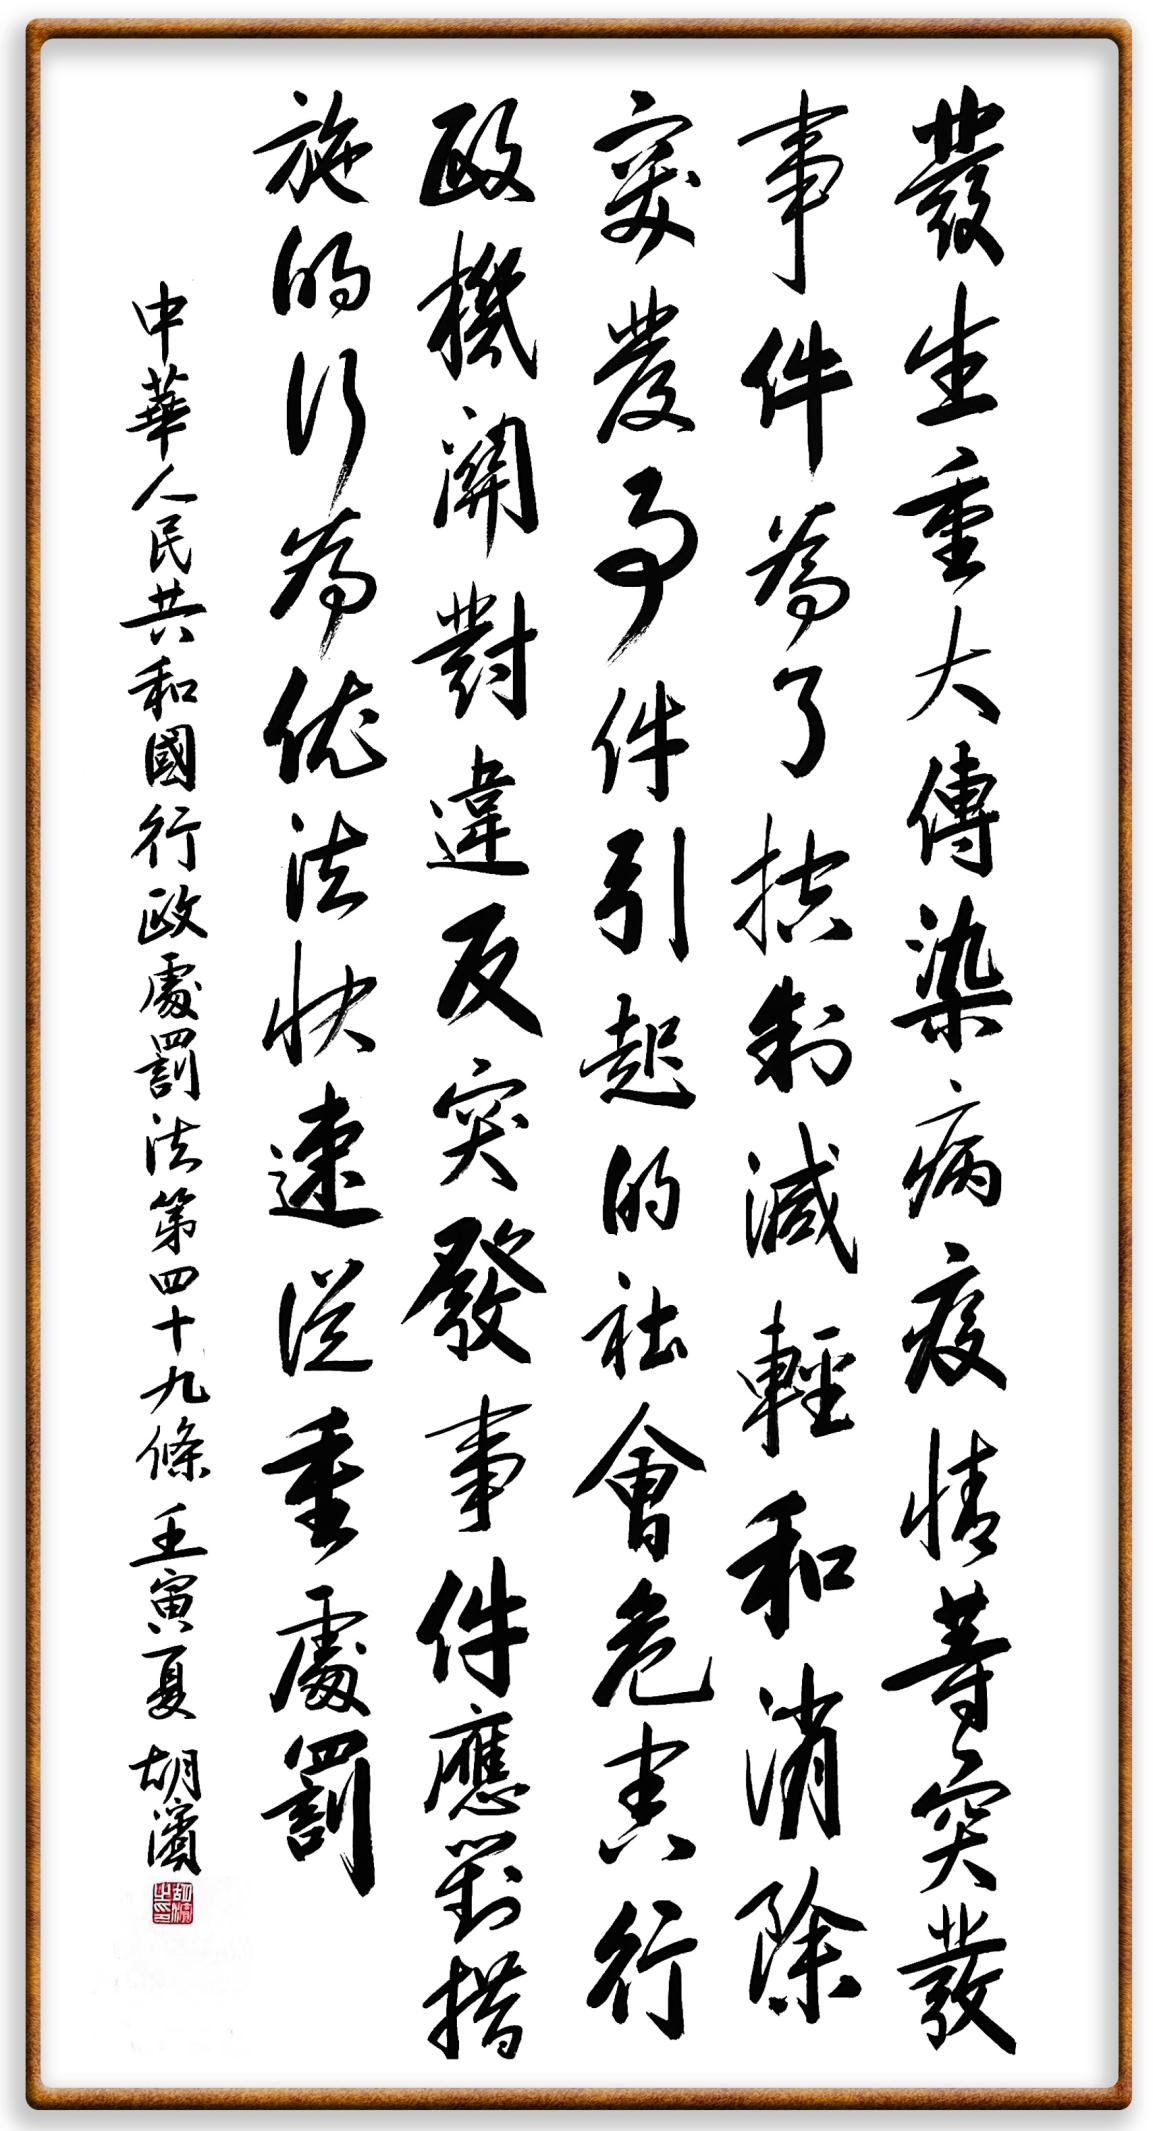 發生重大傳染病疫情等突發
事件為了控制減輕和消除
突發事件引起的社會危害行
政機關對違反突發事件應對措
施的行為依法快速從重處罰
中華人民共和國行政處罰法第四十九條 壬寅夏 胡濱
胡濱之印